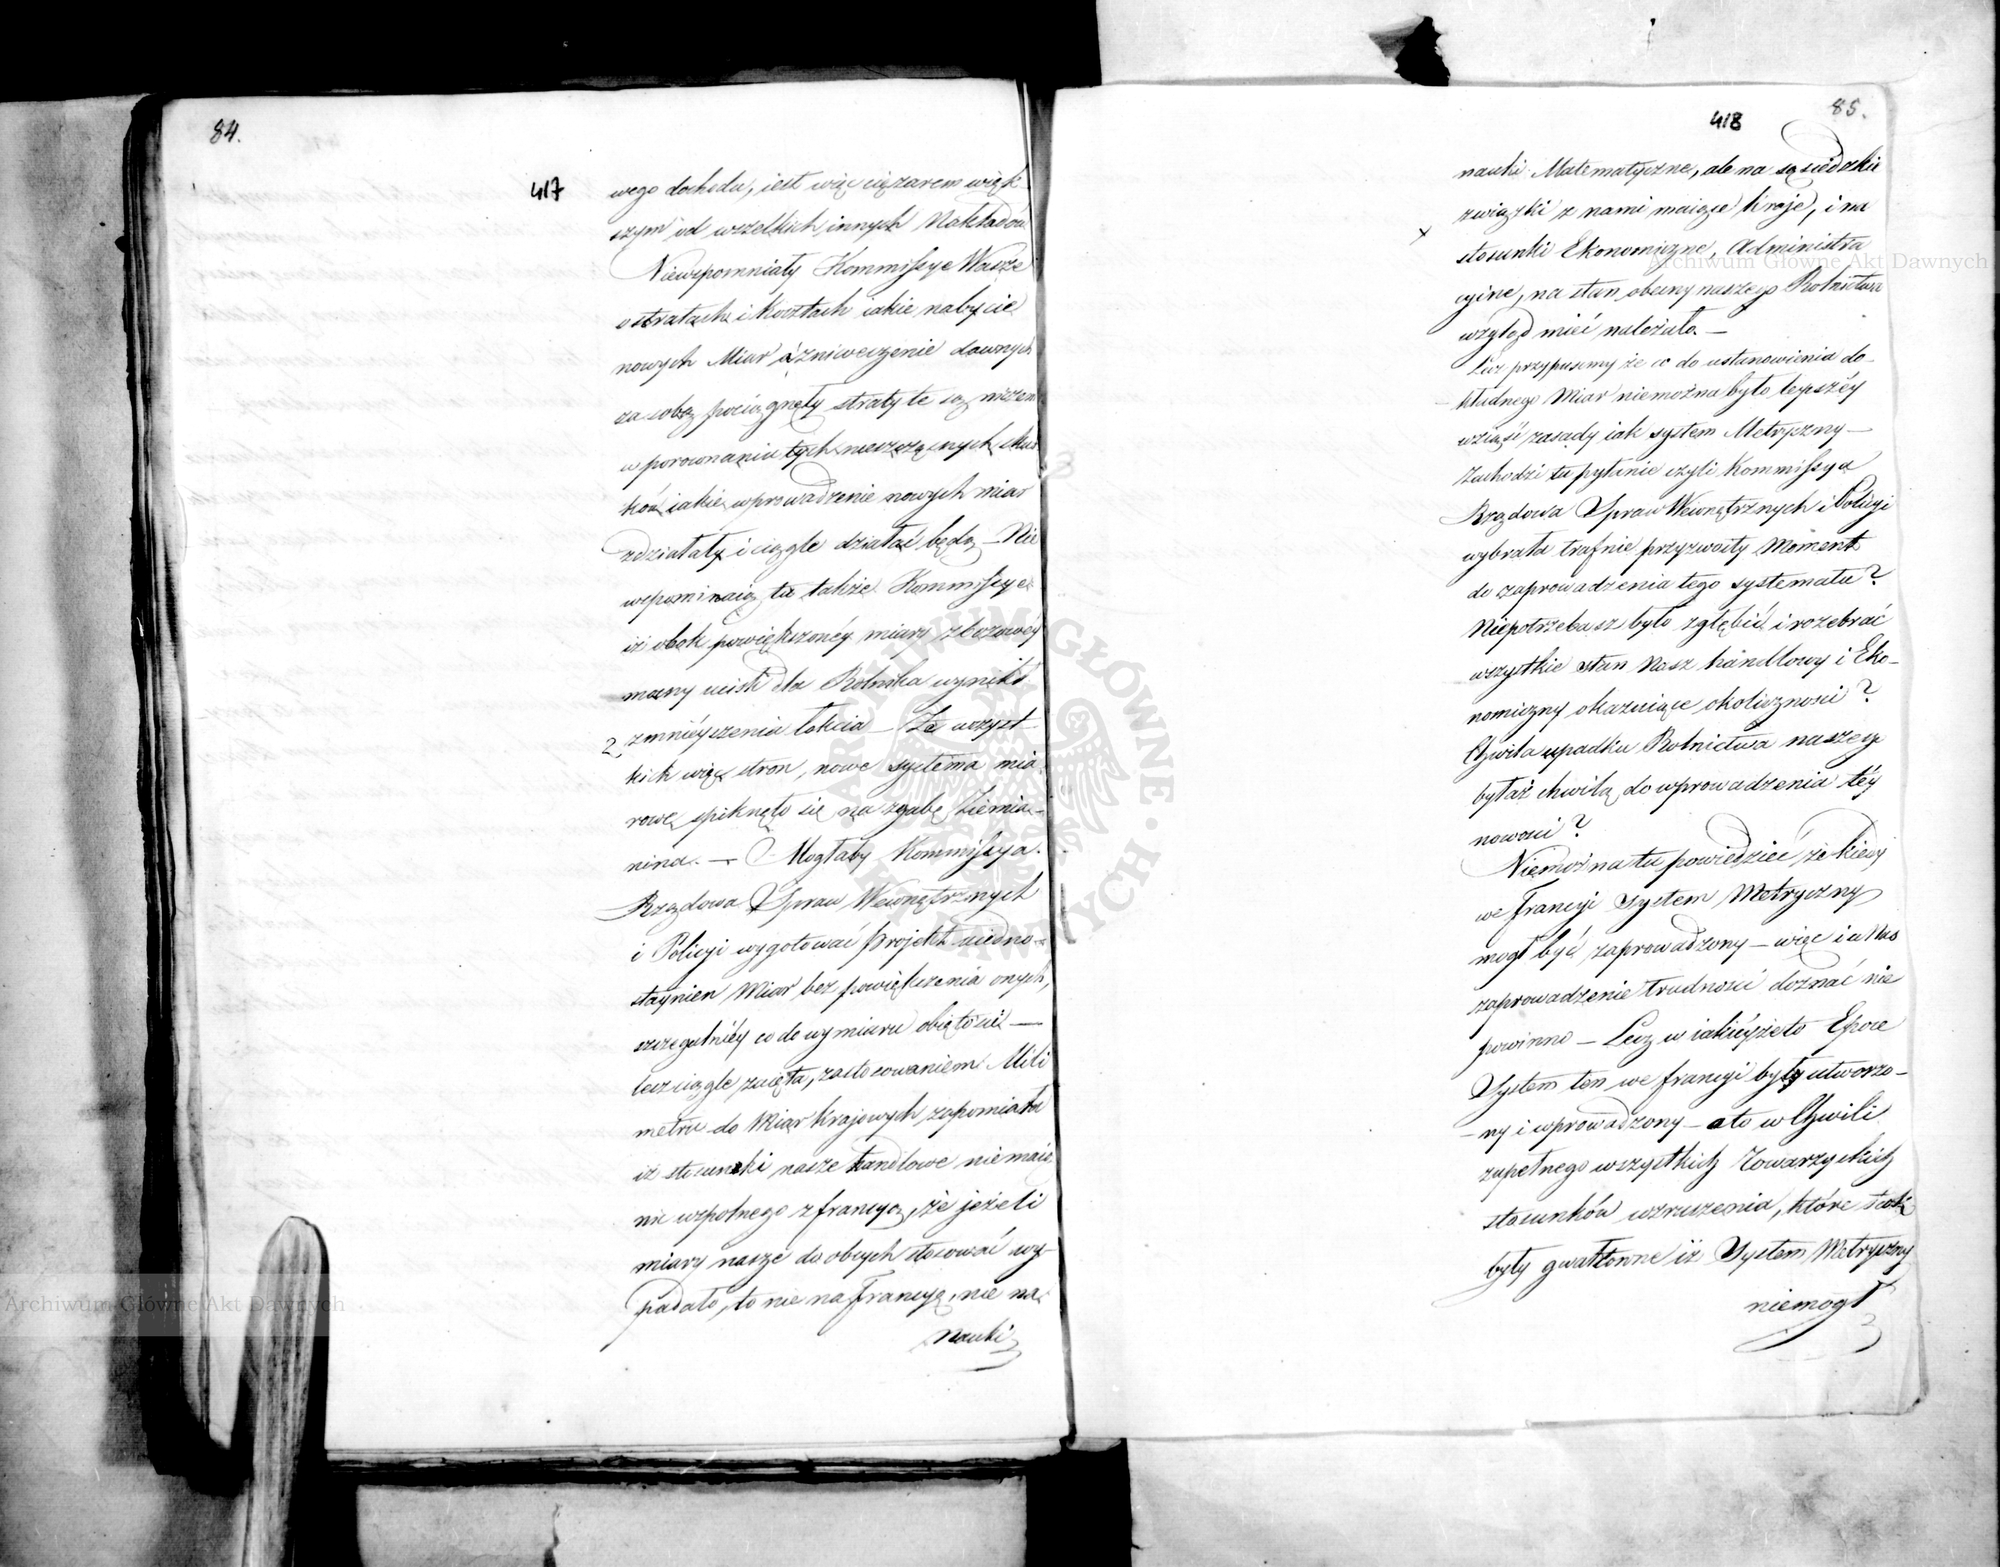 84.
417
wego dochodu, iest więc ciężarem więk
szym od wszelkich innych Nakładów
Niewspomniały Kommissye Wasze
o stratach i kosztach iakie nabycie
nowych Miar a zniweczenie dawnych
za sobą pociągnęły straty te są niczem
w porownaniu tych nieszczęsnych skut
ków iakie wprowadzenie nowych miar
zdziałały i ciągle działać będą – Nie
wspominaią tu także Kommissye
iż obok powiększonéy miary zbozowey
mamy ucisk dla Rolnika wynikł
zmniéyszenia łokcia – Ze wszyst
kich więc stron, nowe systema mia
rowe spiknęło się na zgubę Ziemia–
nina. – Mogłaby Kommissya
Rządowa Spraw Wewnętrznych
i Policyi wygotować projekt uiedno–
staynien Miar bez powiększenia onych,
szczegulniéy co do wymiaru obiętości —
lecz ciągle zaięta, zastosowaniem Mili
metru do Miar krajowych zapomiała
iż stosunki nasze handlowe nie maią
nic wspolnego z francyą, że jeżeli
miary nasze do obcych stosować wy–
padało, to nie na Francyą, nie na
Nauki
418
85.
nauki Matematyczne, ale na sąsiedzkie
związki z nami maiące kraje, i na
x
stosunki Ekonomiczne, Administra
cyine, na stan obecny naszego Rolnictwa
wzgląd mieć należało. —
Lecz przypuscmy że co do ustanowienia do–
– kładnego Miar niemożna było lepszéy
wziąść zasady iak system Metryczny —
Zachodzi tu pytanie czyli Kommissya
Rządowa Spraw Wewnętrznych i Policyi
wybrała trafnie przyzwoity Moment
do zaprowadzenia tego systematu?
Niepotrzebasz było zgłębić i rozebrać
wszystkie stan Nasz handlowy i Eko–
nomiczny okazuiące okoliczności?
Chwila upadku Rolnictwa naszego
byłaż chwilą do wprowadzenia téy
nowości?
Niemożna tu powiedzieć że kiedy
we Francyi System Metryczny
mogł być zaprowadzony – więc i u Nas
zaprowadzenie trudności doznać nie
powinno – Lecz w iakiéyżeto Epoce
System ten we francyi były utworzo–
– ny i wprowadzony – oto w Chwili
zupełnego wszystkich Towarzyskich
stosunków wzruszenia, które tak
były gwałtowne iż System Metryczny
niemogł
Archiwum Główne Akt Dawnych
Archiwum Główne Akt Dawnych
ARCHIWUM GŁÓWNE AKT DAWNYCH